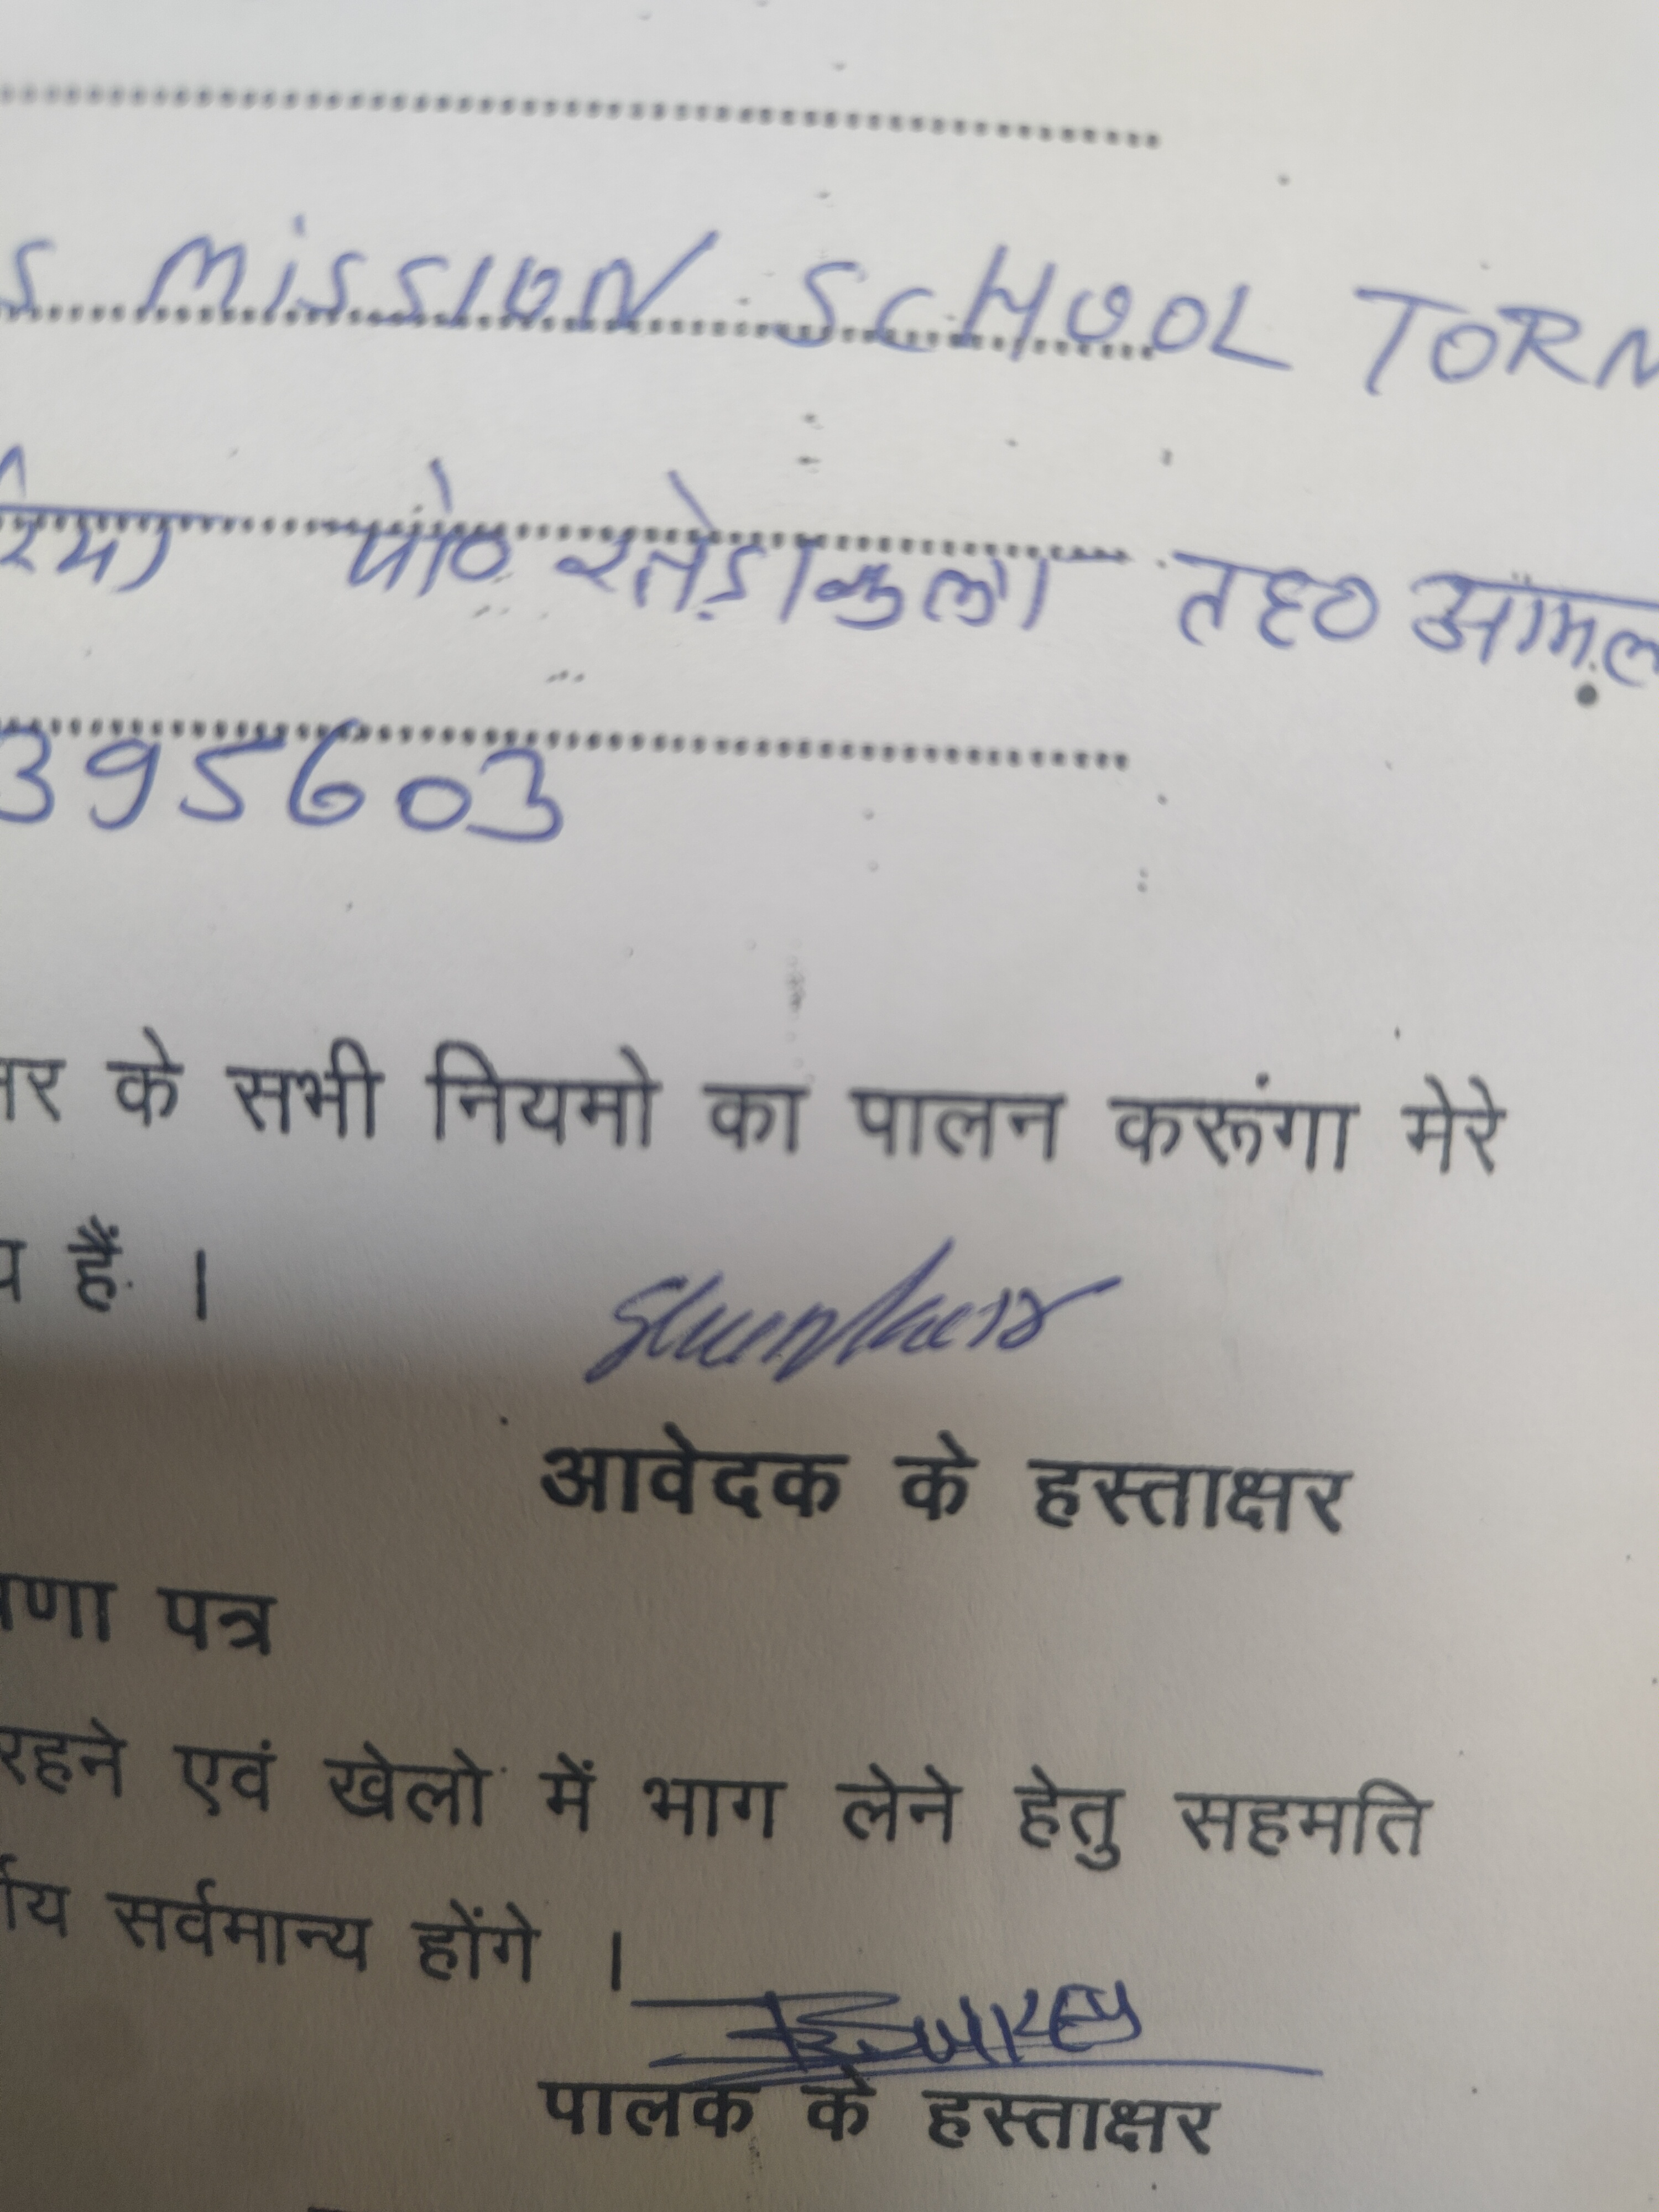 S MISSION SCHOOL TORN
रिया पो० रतेड़ाकला तह० आमल
395603
के सभी नियमो का पालन करूंगा मेरे
हैं ।
आवेदक के हस्ताक्षर
पत्र
रहने एवं खेलो में भाग लेने हेतु सहमति
सर्वमान्य होंगे ।
पालक के हस्ताक्षर